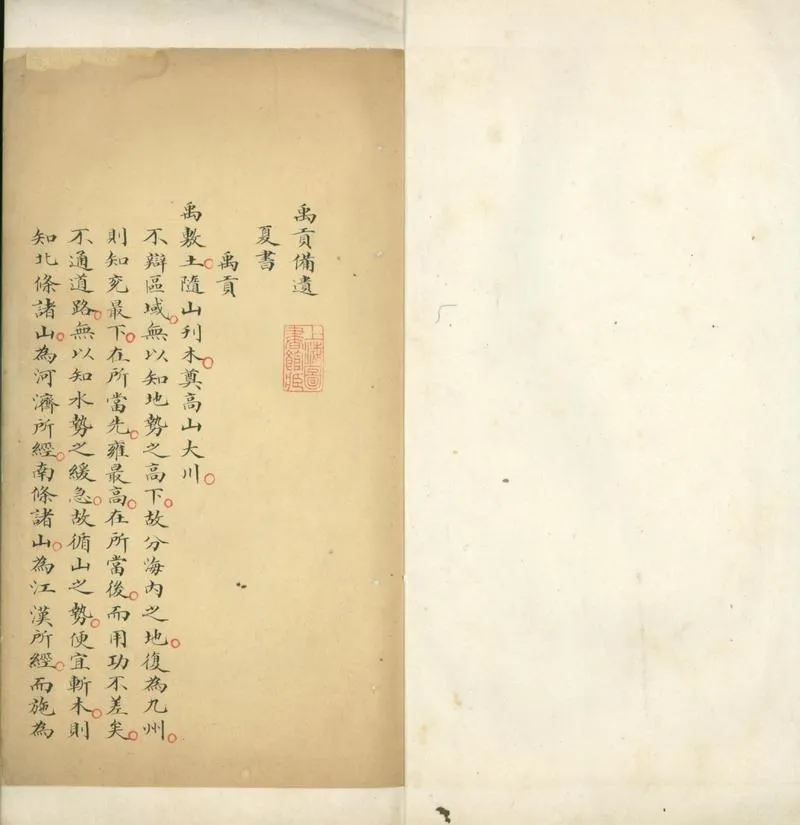 禹貢備遺
夏書
禹貢
禹敷土隨山刊木奠高山大川
不辯區域無以知地勢之高下故分海內之地復為九州
則知兗最下在所當先雍最高在所當後而用功不差矣
不通道路無以知水勢之緩急故循山之勢便宜斬木則
知北條諸山為河濟所經南條諸山為江漢所經而施為
上海圖書館藏